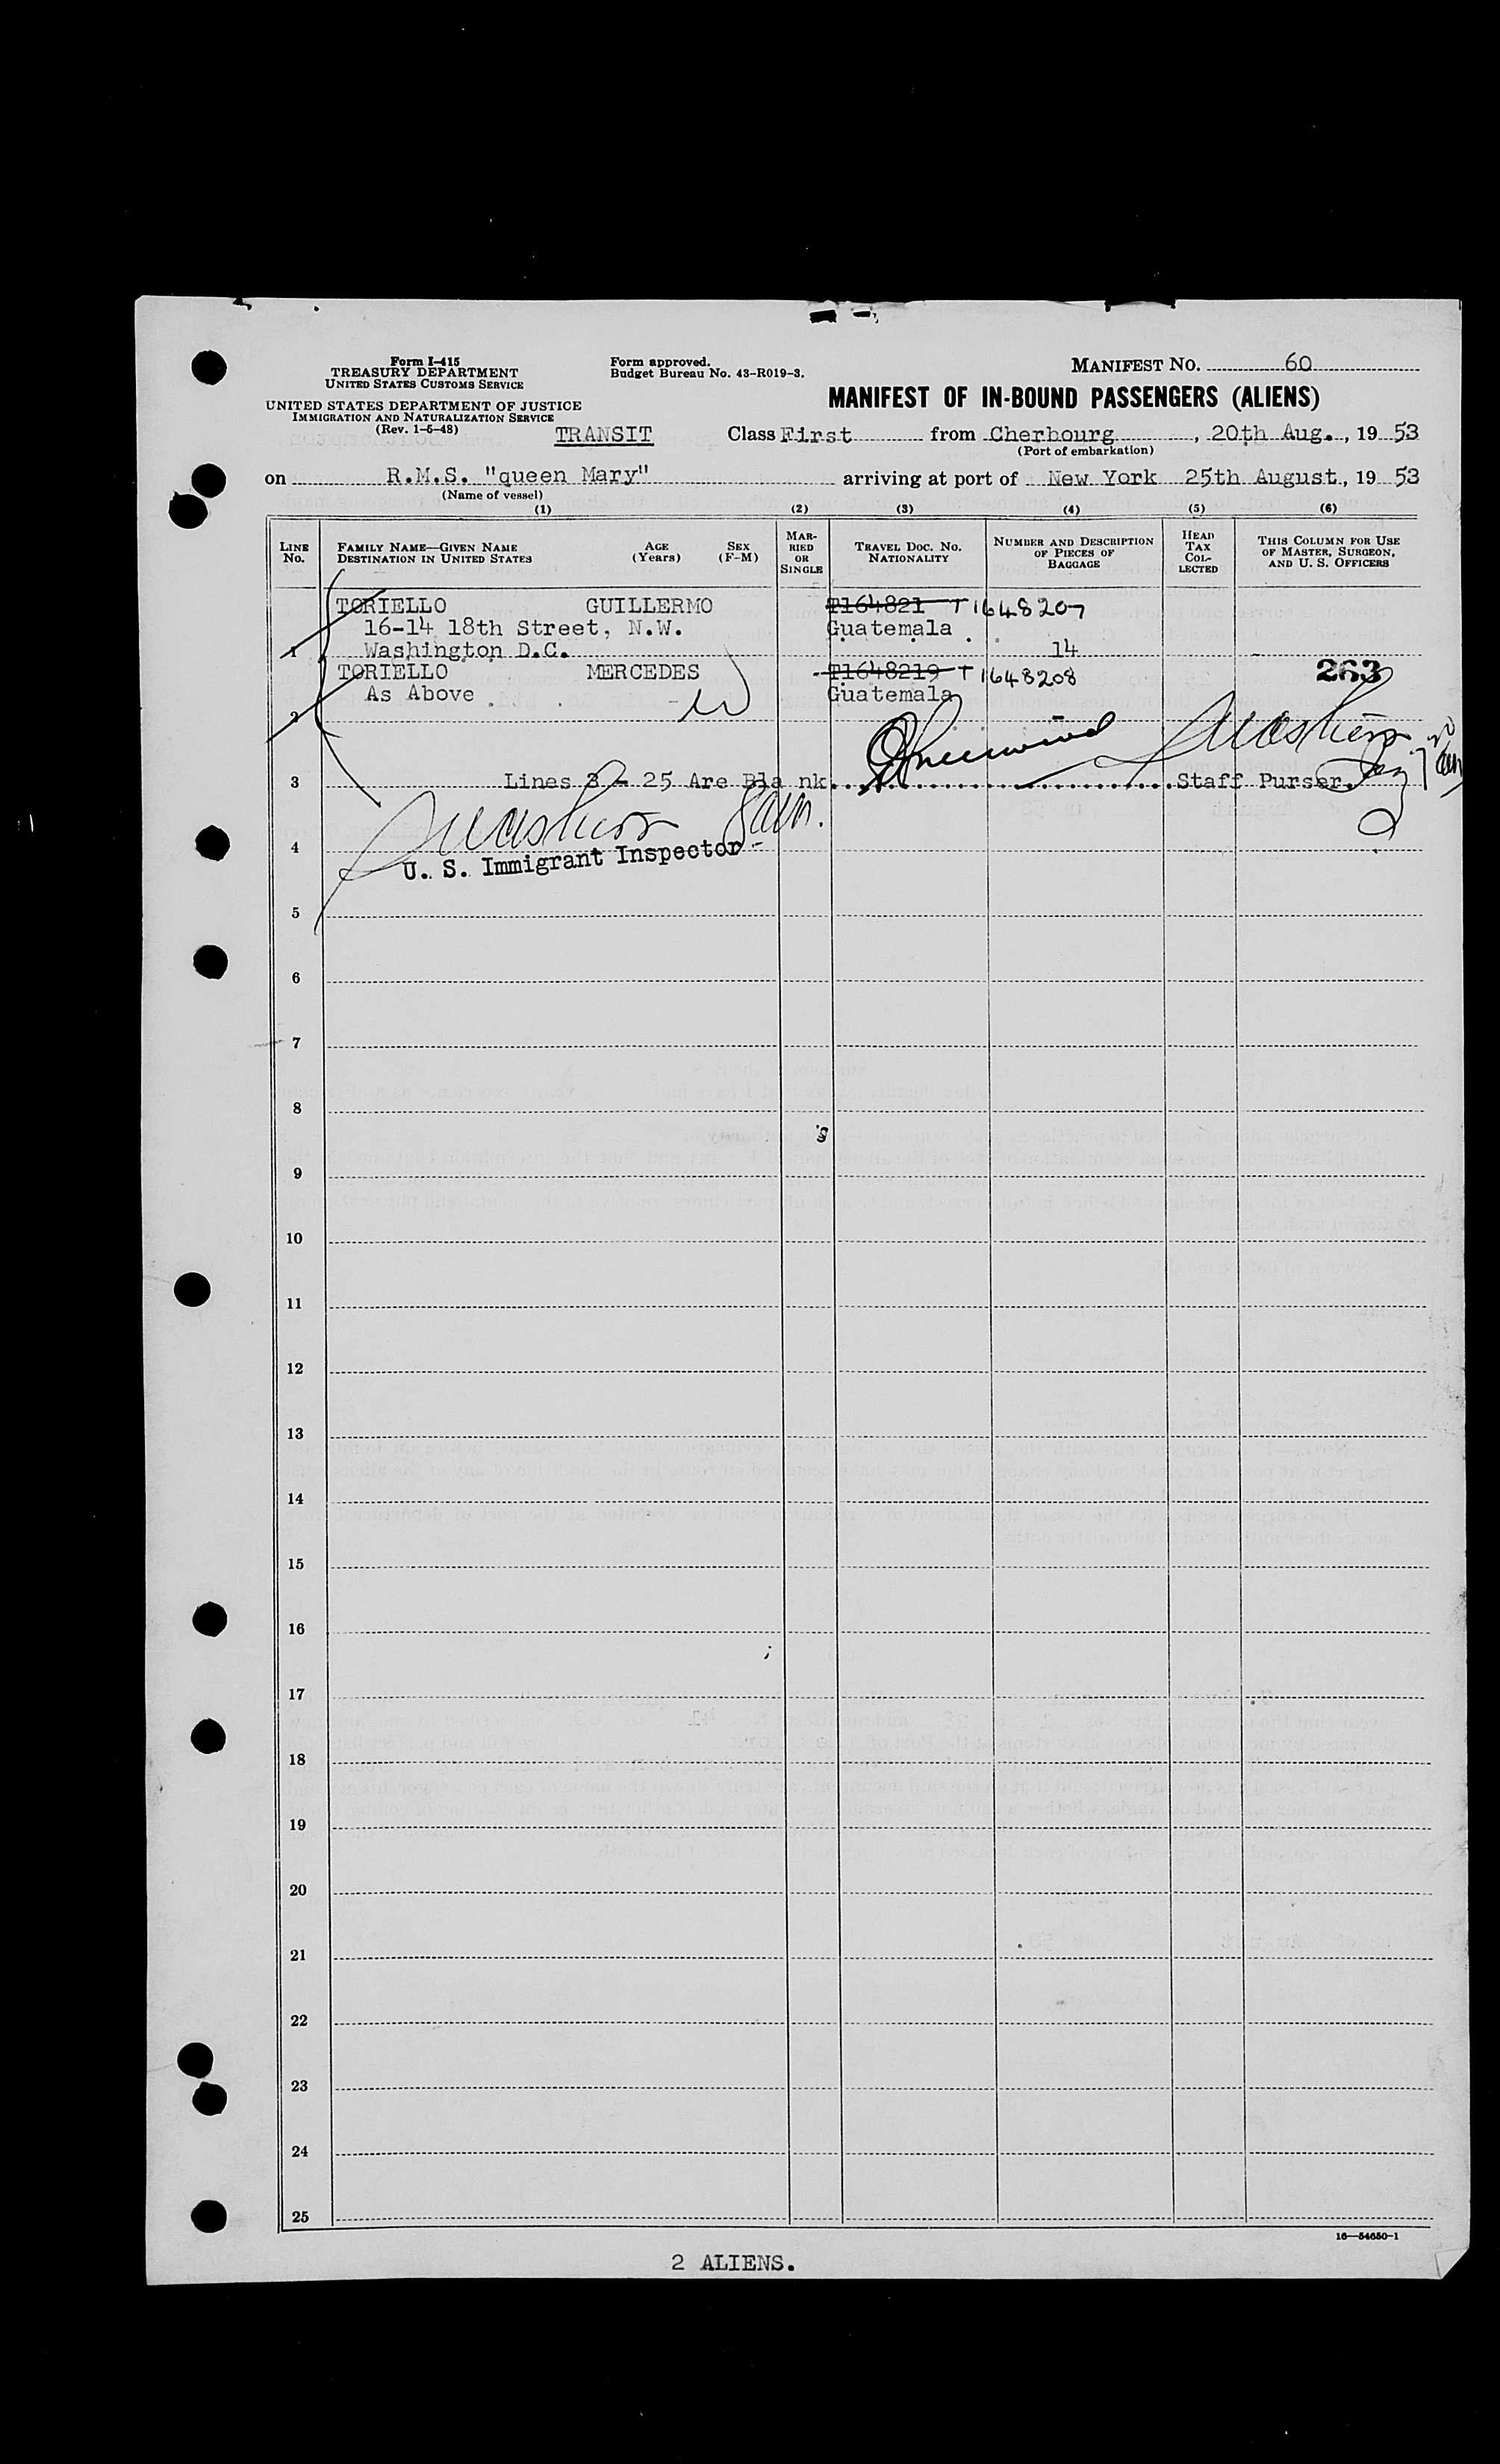 Form I-415
TREASURY DEPARTMENT
UNITED STATES CUSTOMS SERVICE
Form approved.
Budget Bureau No. 43-R019-3.
MANIFEST NO. 60
UNITED STATES DEPARTMENT OF JUSTICE
IMMIGRATION AND NATURALIZATION SERVICE
(Rev. 1-6-48)
MANIFEST OF IN-BOUND PASSENGERS (ALIENS)
TRANSIT Class First from Cherbourg, 20th Aug., 1953
(Port of embarkation)
on R.M.S. "queen Mary" arriving at port of New York 25th August, 1953
(Name of vessel)
(1) (2) (3) (4) (5) (6)
LINE NO.
FAMILY NAME—GIVEN NAME
DESTINATION IN UNITED STATES
AGE (Years)
SEX (F-M)
MARRIED OR SINGLE
TRAVEL DOC. NO. NATIONALITY
NUMBER AND DESCRIPTION OF PIECES OF BAGGAGE
HEAD TAX COLLECTED
THIS COLUMN FOR USE OF MASTER, SURGEON, AND U. S. OFFICERS
TORIELLO GUILLERMO T164821 T1648207
16-14 18th Street, N.W. Guatemala
1 Washington D.C. 14
TORIELLO MERCEDES T1648219 T1648208 263
As Above Guatemala
2
3 Lines 3 - 25 Are Bla nk. Staff Purser.
4
U. S. Immigrant Inspector
5
6
7
8
9
10
11
12
13
14
15
16
17
18
19
20
21
22
23
24
25
16—54650-1
2 ALIENS.